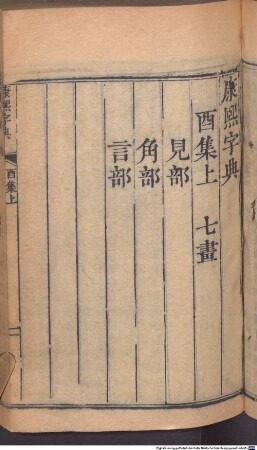 康熙字典
酉集上 七畫
見部
角部
言部
康熙字典
酉集上
一